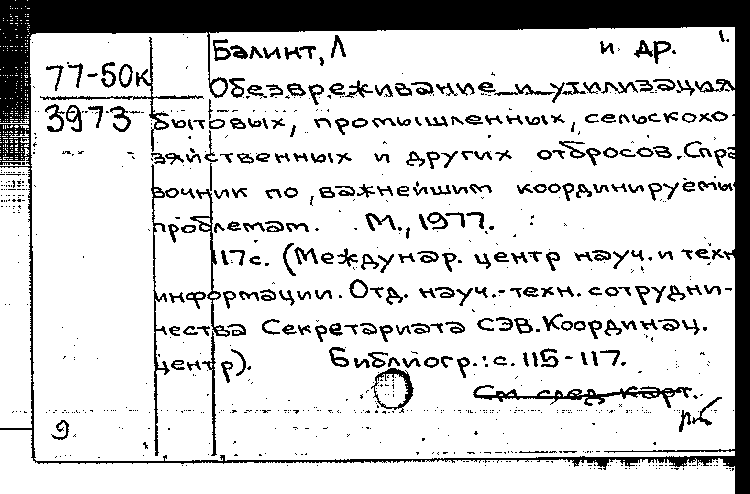 1.
Балинт, Л и др.
77-50к
Обезвреживание и утилизация
3973 бытовых, промышленных, сельскохо-
зяйственных и других отбросов. Спра
вочник по важнейшим координируемы
проблемам. М., 1977.
117с. (Междунар. центр науч. и техн
информации. Отд. науч.-техн. сотрудни-
чества Секретариата СЭВ. Координац.
центр). Библиогр.: с. 115-117.
См след карт.
9